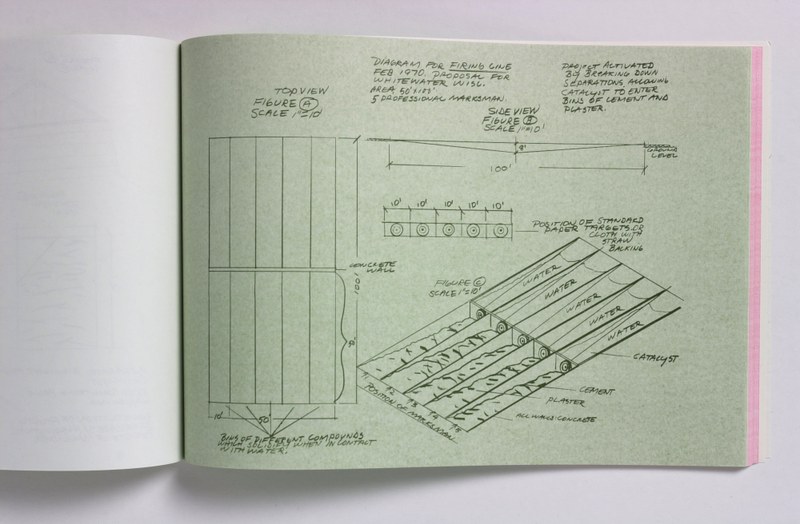 TOP VIEW
FIGURE A
SCALE 1"=10'
DIAGRAM FOR FIRING LINE
FEB 1970. PROPOSAL FOR
WHITEWATER WISC.
AREA 50'x100'
5 PROFESSIONAL MARKSMAN.
PROJECT ACTIVATED
BY BREAKING DOWN
SEPARATIONS ALLOWING
CATALYST TO ENTER
BINS OF CEMENT AND
PLASTER.
SIDE VIEW
FIGURE B
SCALE 1"=10'
GROUND
LEVEL
100'
10' 10' 10' 10' 10'
POSITION OF STANDARD
PAPER TARGETS OR
CLOTH WITH
STRAW
BACKING
CONCRETE
WALL
100'
FIGURE C
SCALE 1"=10'
WATER
WATER
WATER
WATER
WATER
CATALYST
CEMENT
PLASTER
ALL WALLS: CONCRETE
POSITION OF MARKSMAN
10'
50'
BINS OF DIFFERENT COMPOUNDS
WHICH SOLIDIFY WHEN IN CONTACT
WITH WATER.